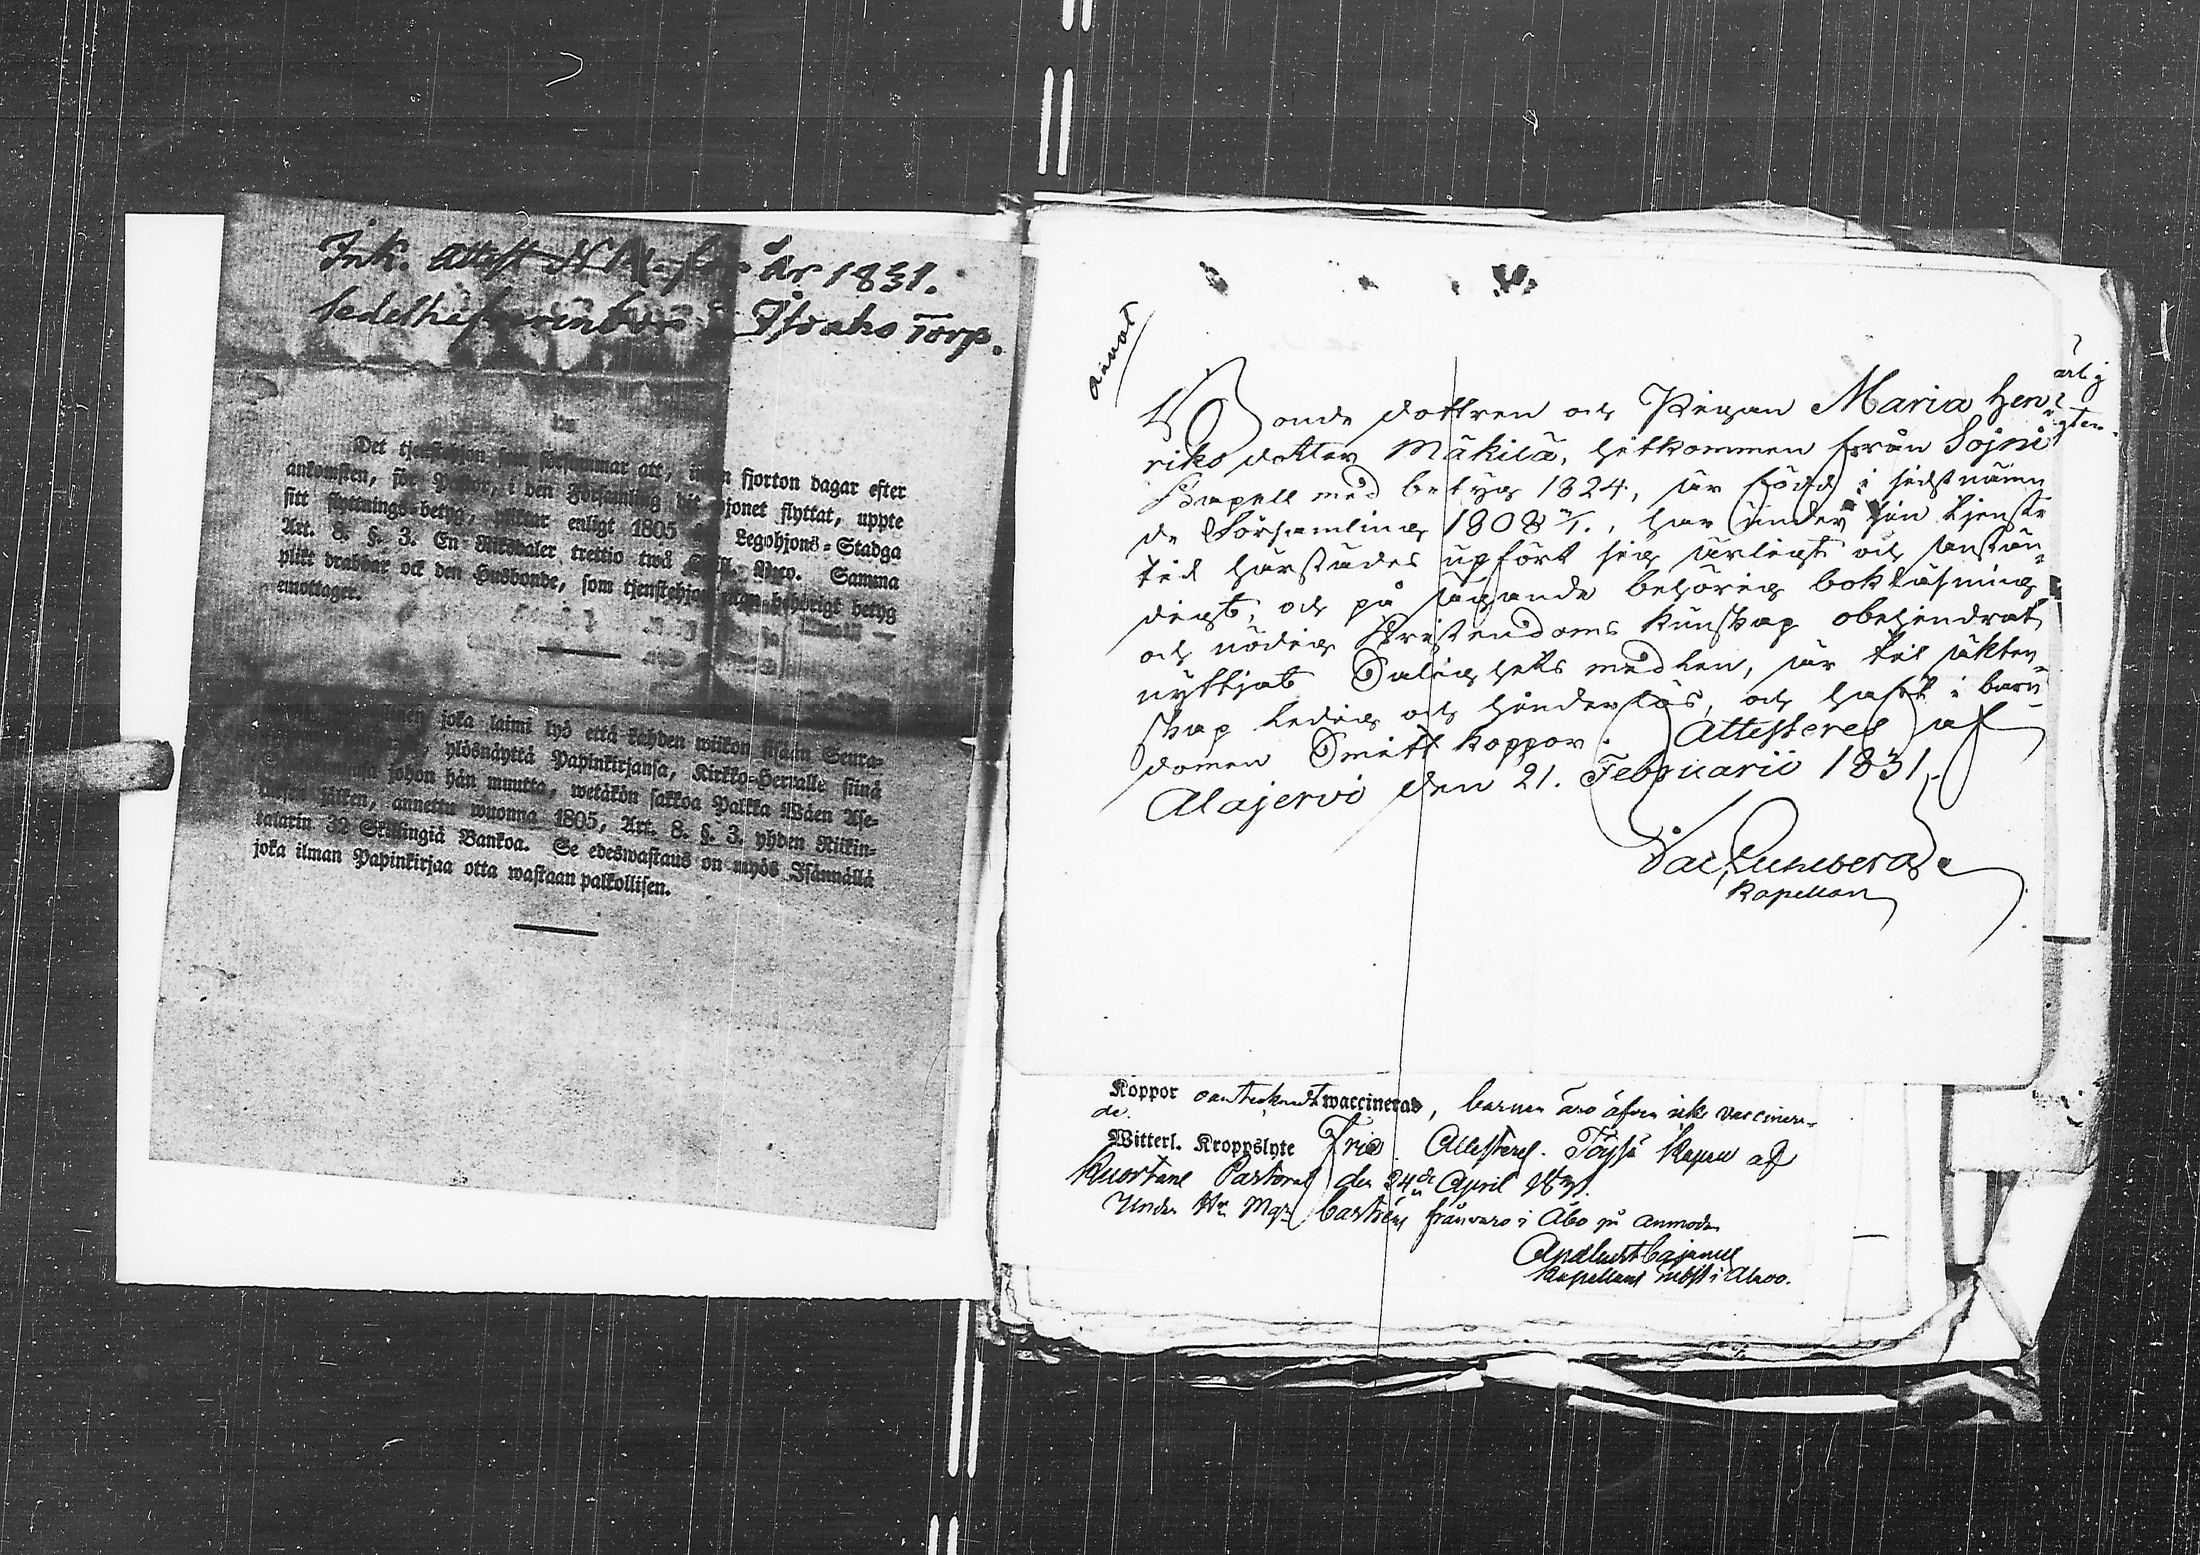 Ink. attest N för år 1831.
Sedelhafwern bor Torp.
Det tjenstehjon som försummar att, innan fjorton dagar efter
ankomsten, för Pastor, i den Församling dit hjonet flyttat, uppte
sitt flyttnings-betyg, pliktar enligt 1805 Legohjons-Stadga
Art. 8. §. 3. En Riksdaler trettio twå Skill. Bco. Samma
plikt drabbar ock den Husbonde, som tjenstehjon utan behörigt betyg
emottager.
joka laimi lyö että kahden wiikon sisään Seura-
ylösnäyttä Papinkirjansa, Kirkko-Herralle siinä
johon hän muutta, wetäkön sakkoa Palkka Wäen Ase-
tuksen jälken, annettu wuonna 1805, Art. 8. §. 3. yhden Riikin-
talarin 32 Skillingiä Bankoa. Se edeswastaus on myös Isännällä
joka ilman Papinkirjaa otta wastaan palkollisen.
Bonde dottren och Pigan Maria Hen-
riks dotter Mäkilä, hitkommen från Sojni
Kapell med betyg 1824, är född i sidstnämn
de Församling 1808, har under sin tjenste
tid härstädes upfört sig ärligt och anstän-
digt; och på ägande behörig bokläsning
och nödig Kristendoms kunskap obehindrat
nyttjat Salighets medlen, är til äkten-
skap ledig och hinderlös, och haft i barn-
domen Smitt koppor. Attesteres af
Alajervi den 21. Februarii 1831.
Kapellan
ärlig
Koppor waccinerad, barnen äro äfven icke vaccinera-
de.
Witterl. Kroppslyte Fria. Attesteres. Töysä Kapell af
Kuortane Pastorat den 24de April
Under Hr Mgr Castréns frånvaro i Åbo på anmodan
Cajanus
Kapellans i Alavo.